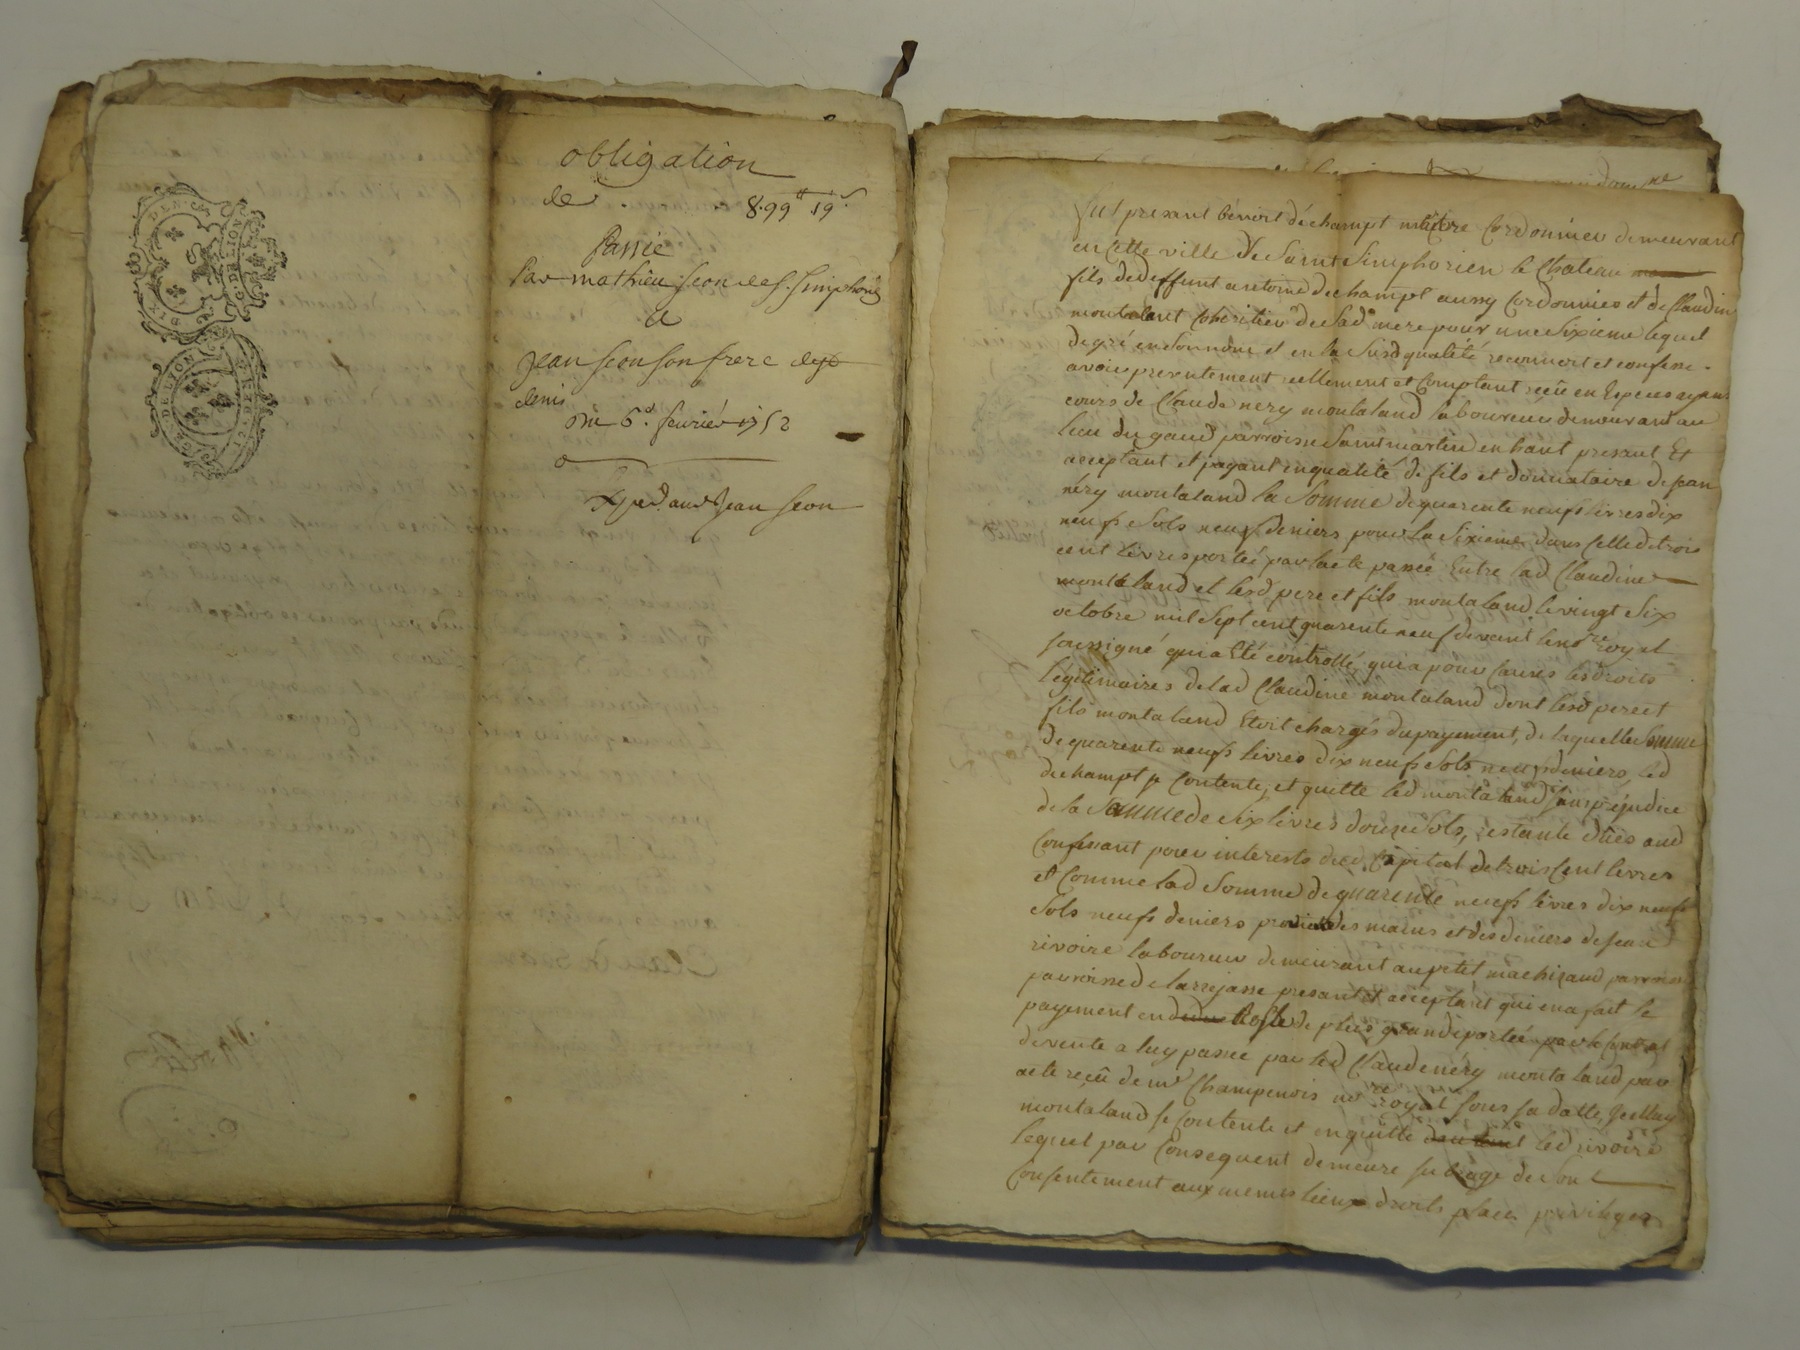 obligation
de 899ᵗᵗ 19ˢ
Passée
Par mathieu seon de sᵗ. simphorien
a
jean seon son frere de sᵗ
denis
Du 6ᵈ. feuriér 1752
Exped. aud Jean seon
DIX DEN.
G. DE LION
G. DE LYON
Fut presant bénoit déchampt maître Cordonnier demeurant
en cette ville de Saint Simphorien le Chateau
fils de deffunt antoine dechampt aussy Cordonnier et de Claudine
montaland Coheritier de Sadᵉ mere pour une Sixieme lequel
de gré en son nom et en la Susd qualité reconnoit et confesse
avoir presentement reellement et Comptant reçû en Especes ayant
cours de Claude néry montaland laboureur demeurant au
lieu du gaud parroisse Saint martin en haut presant Et
acceptant et payant en qualité de fils et donnataire de jean
néry montaland la Somme de quarente neufs livres dix
neufs Sols neufs deniers pour la Sixieme dans Celle de trois
cent livres portée par lacte passée Entre lad Claudine
montaland et lesd pere et fils montaland le vingt Six
octobre mil Sept cent quarente neuf devant le noʳᵉ royal
soussigné qui a Eté controllé, qui a pour Causes les droits
légitimaires de lad Claudine montaland dont lesd pere et
fils montaland Etoit chargés du payement, de laquelle Somme
de quarente neufs livres dix neufs Sols neufs deniers, led
dechampt se Contente, et quitte led montaland Sans préjudice
de la Somme de Six livres douze Sols, restante dües aud
Confessant pour interests dud Capital de trois Cent livres
et Comme lad Somme de quarente neufs livres dix neufs
Sols neufs deniers provient des mains et des deniers de jean
rivoire laboureur demeurant au petit machizaud parroisse
parroisse de larrajasse presant et acceptant qui en a fait le
payement en de plus grande portée par le Contrat
de vente a luy passée par led Claude néry montaland par
acte reçû de mᵉ Champenois noʳᵉ royal sous sa datte,
montaland se Contente et en quitte led rivoire
lequel par Consequent demeure subrogé de son
Consentement aux memes lieux droits place privileges